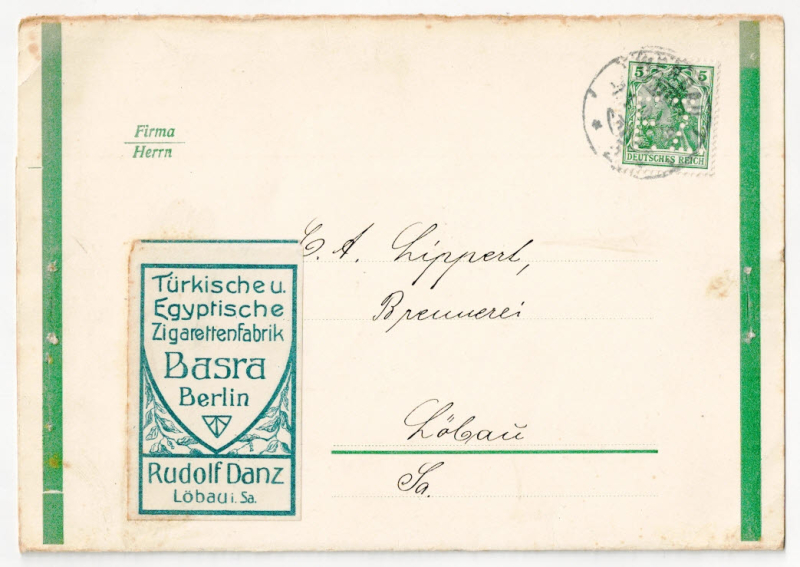 5 5
DEUTSCHES REICH
Firma
Herrn
C. A. Lippert,
Brennerei
Löbau
Sa.
Türkische u.
Egyptische
Zigarettenfabrik
Basra
Berlin
Rudolf Danz
Löbau i. Sa.